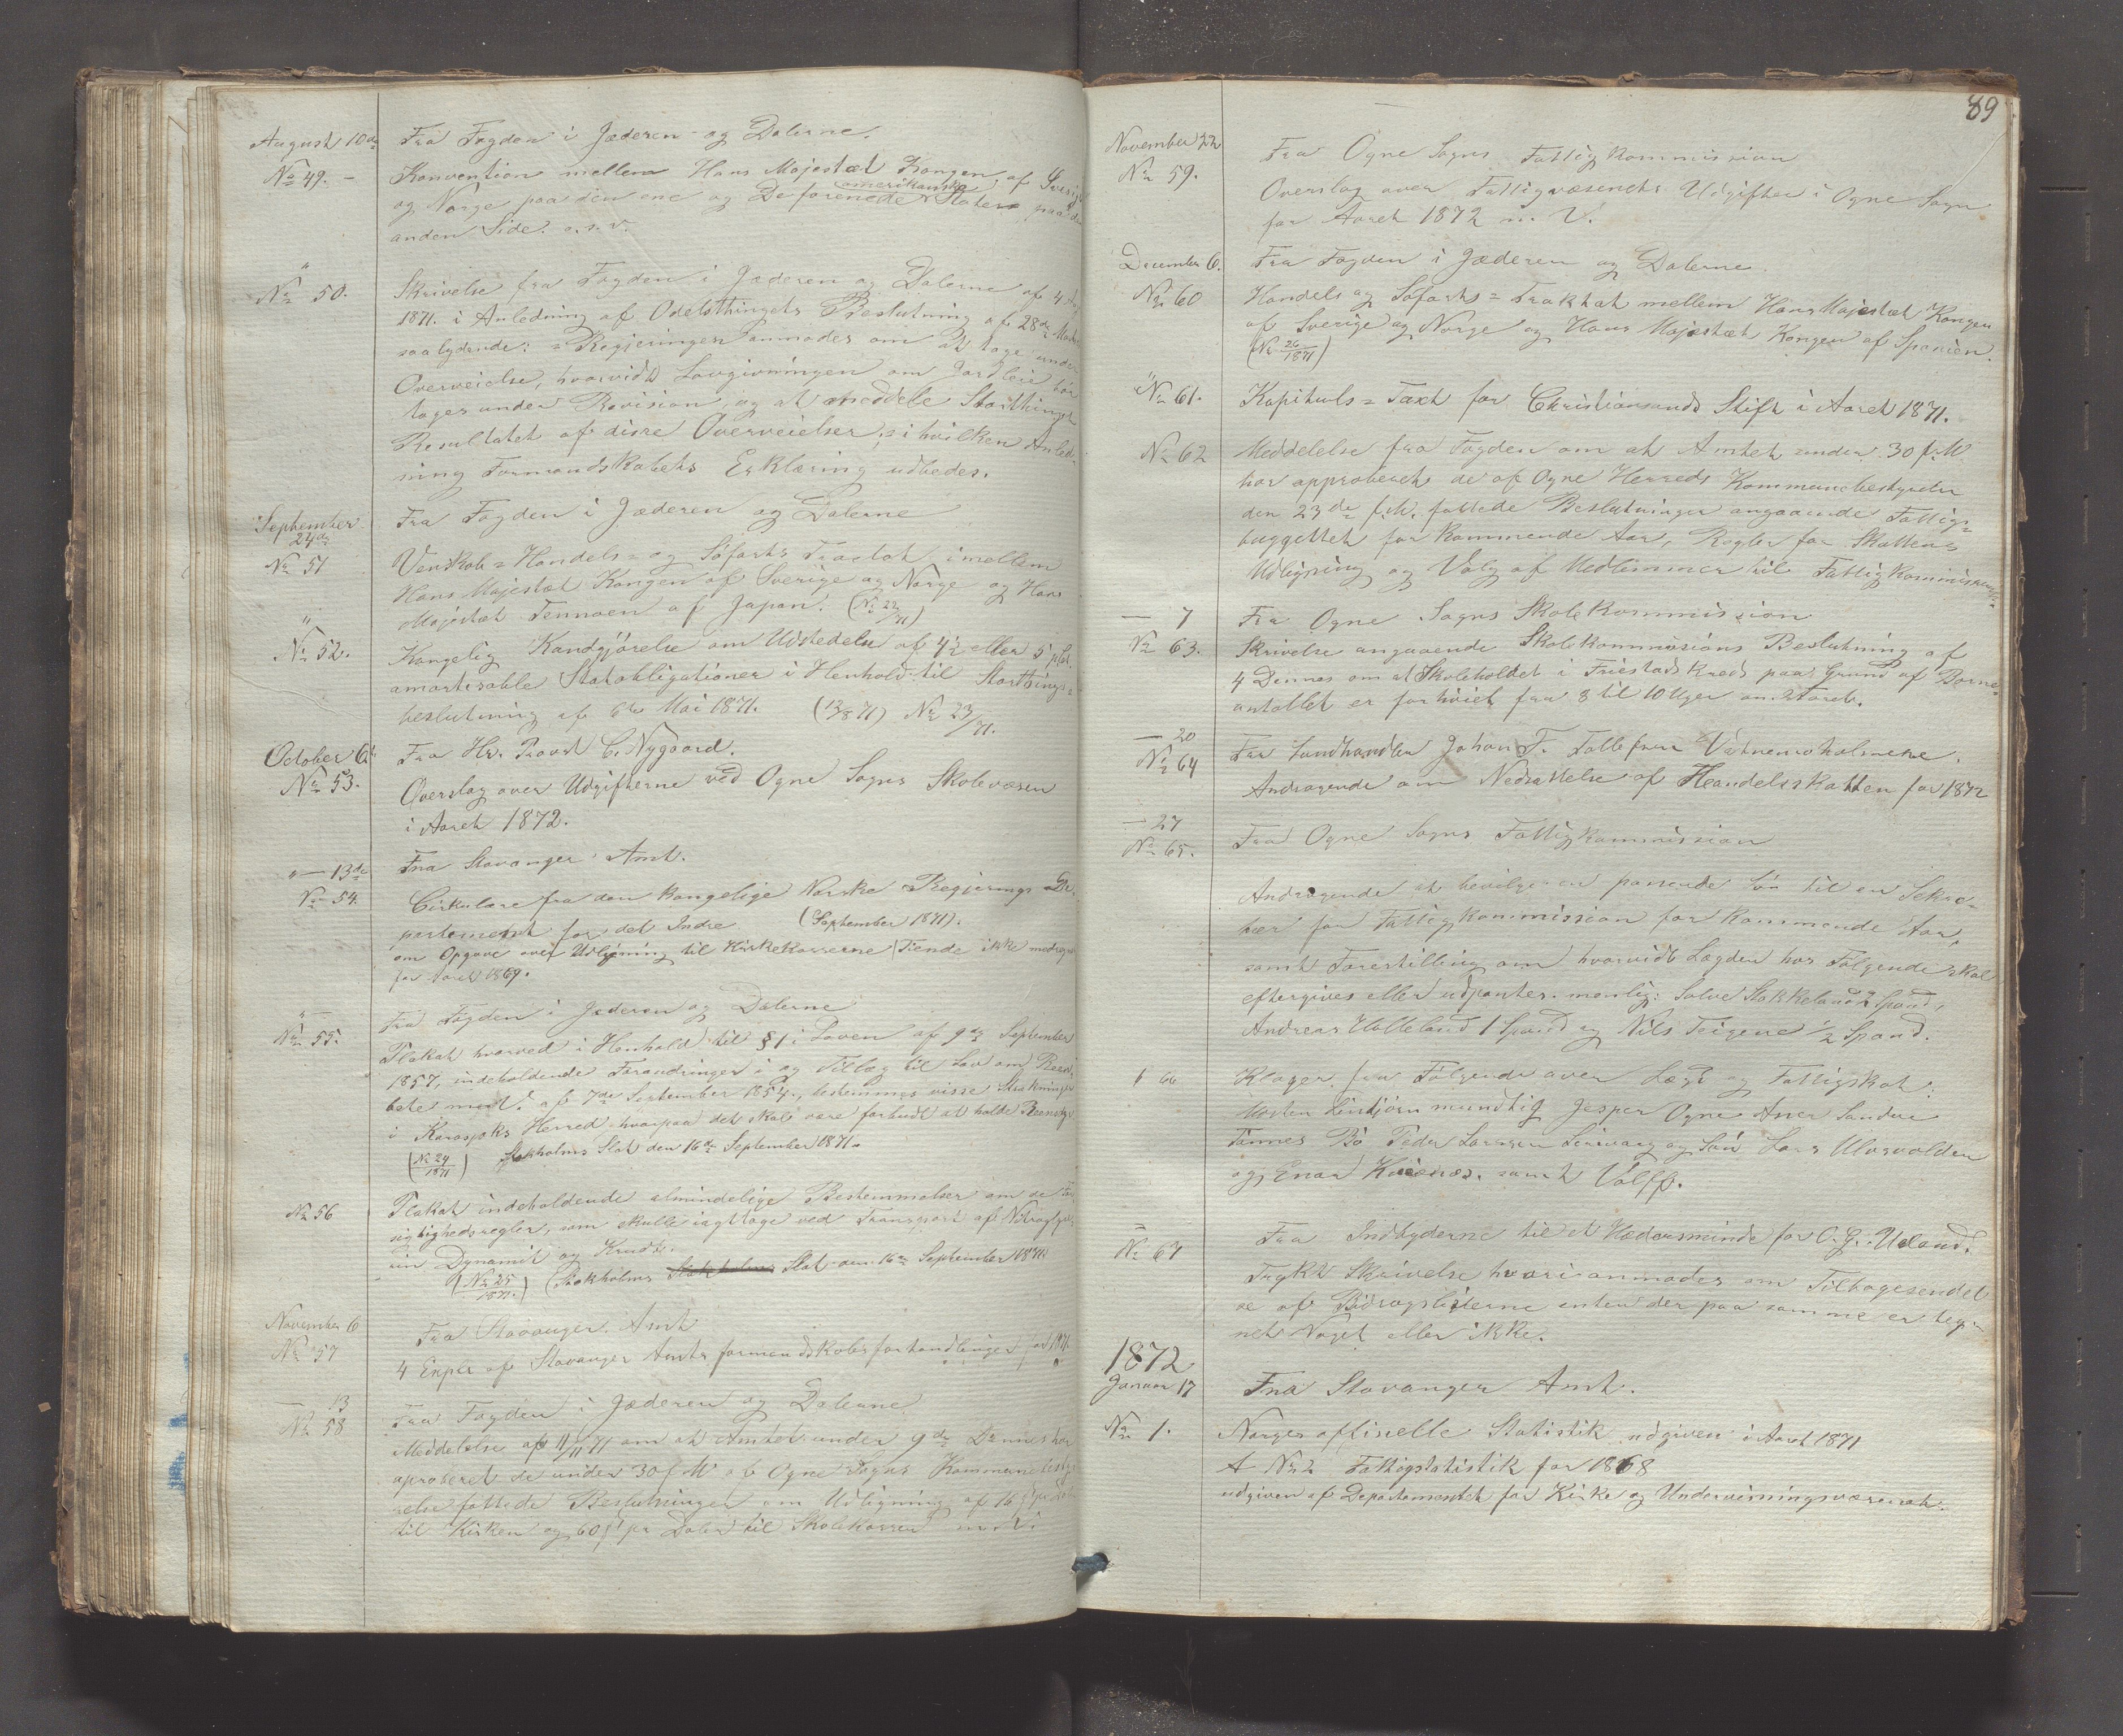 August 10de
Fra Fogden i Jæderen og Dalerne.
No 49. -
Konvention mellem Hans Majestæt Kongen af Sverige
og Norge paa den ene og Deforenede amerikanske Stater paa den
anden Side. o.s.v.
"
No 50.
Skrivelse fra Fogden i Jæderen og Dalerne af 4 Aug
1871. i Anledning af Odelsthingets Beslutning af 28de Marts
saalydende: = Regjeringen anmodes om at tage under
Overveielse, hvorvidt Lovgivningen om Jordleie bør
tages under Revision, og at meddele Storthinget
Resultatet af disse Overveielser; = i hvilken Anled-
ning Formandskabets Erklæring udbedes.
September 24de
Fra Fogden i Jæderen og Dalerne
No 51
Venskab = Handels = og Søfarts Tractat imellem
Hans Majestæt Kongen af Sverige og Norge og Hans
Majestæt Tennoen af Japan. (No 22/71)
"
No 52.
Kongelig Kundgjörelse om Udstedelse af 4½ eller 5 pCt.
amortisable Statobligationer i Henhold til Storthings =
beslutning af 6te Mai 1871. (12/8 71) No 23/71.
October 6te
Fra Hr. Provst C. Nygaard.
No 53.
Overslag over Udgifterne ved Ogne Sogns Skolevæsen
i Aaret 1872.
" — 13de
Fra Stavanger Amt.
No 54.
Cirkulære fra den kongelige Norske Regjerings De-
partement for det Indre (September 1871).
om Opgave over Udligning til Kirkekasserne (Tiende ikke medregnet
for Aaret 1869.
" —
Fra Fogden i Jæderen og Dalerne
No 55.
Plakat hvorved i Henhold til § 1 i Loven af 9de September
1857, indeholdende Forandringer i og Tillæg til Lov om Reens-
betemmt. af 7de September 1854, bestemmes visse Strækninger
i Karasjoks Herred hvorpaa det skal være forbudt at holde Reensdyr
(No 24/1871) Stokholms Slot den 16de September 1871.
No 56
Plakat indeholdende almindelige Bestemmelser om de For-
sigtighedsregler, som skulle iagttage ved Transport af Nitroglyce-
rin Dynamit og Krudt.
(No 25/1871.) (Stokholms Slot den 16de September 1871)
November 6
Fra Stavanger Amt
No 57
4 Expl. af Stavanger Amts formandskabsforhandlinger for 1871.
— 13
Fra Fogden i Jæderen og Dalerne
No 58
Meddelelse af 11/11 71 om at Amtet under 9de Dennes har
aproberet de under 30 f. M. af Ogne Sogns Kommunebesty-
relse fattede Beslutninger om Udligning af 16 pr Daler
til Kirken og 60 pr Daler til Skolekassen m.V.
89
November 22
Fra Ogne Sogns Fattigkommission
No 59.
Overslag over Fattigvæsenets Udgifter i Ogne Sogn
for Aaret 1872 m. V.
December 6.
Fra Fogden i Jæderen og Dalerne
No 60
Handels og Söfarts = Traktat mellem Hans Majestæt Kongen
af Sverige og Norge og Hans Majestæt Kongen af Spanien.
(No 26/1871)
"
No 61.
Kapituls = Taxt for Christiansands Stift i Aaret 1871.
No 62
Meddelelse fra Fogden om at Amtet under 30 f. M.
har approberet de af Ogne Herreds Kommunebestyrelse
den 23de f. M. fattede Beslutninger angaaende Fattig=
buggettet for kommende Aar, Regler for Skattens
Udligning og Valg af Medlemmer til Fattigkommissionen.
— 7
Fra Ogne Sogns Skolekommission
No 63.
Skrivelse angaaende Skolekommisions Beslutning af
4 Dennes om at Skoleholdet i Friestads Kreds paa Grund af Börne-
antallet er forhöiet fra 8 til 10 Uger om Aaret.
— 20
Fra Landhandler Johan F. Tollefsen Vatnemoholmene.
No 64
Andragende om Nedsættelse af Handelsskatten for 1872
— 27
Fra Ogne Sogns Fattigkommission
No 65.
Andragende at bevilge en passende Lön til en Sekre-
tær for Fattigkommission for kommende Aar,
samt Forestilling om hvorvidt Lægden hos Fölgende skal
eftergives eller udpantes. nemlig: Salve Stokkeland 2 Spand,
Andreas Holleland 1 Spand og Nils Teigene 1/2 Spand.
66
Klager fra Fölgende over Lægd og Fattigskat:
mundtlig Jesper Ogne Aner Sandve
Tönnes Bö Peder Larssen og Lars Ulvsvolden
og Enar samt Volff.
=
Fra Indbyderne til et Hædersminde for O. G. Ueland.
No 67
Trykt Skrivelse hvori anmodes om Tilbagesendel
se af Bidragslisterne enten der paa samme er teg-
net Noget eller ikke.
1872
Januar 17
Fra Stavanger Amt.
No 1.
Norges officielle Statistik udgiven i Aaret 1871
A No 2 Fattigstatistik for 1868
udgiven af Departementet for Kirke og Undervisningsvæsenet.